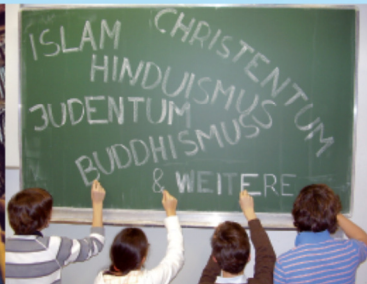 ISLAM
CHRISTENTUM
HINDUISMUS
JUDENTUM
BUDDHISMUS
& WEITERE